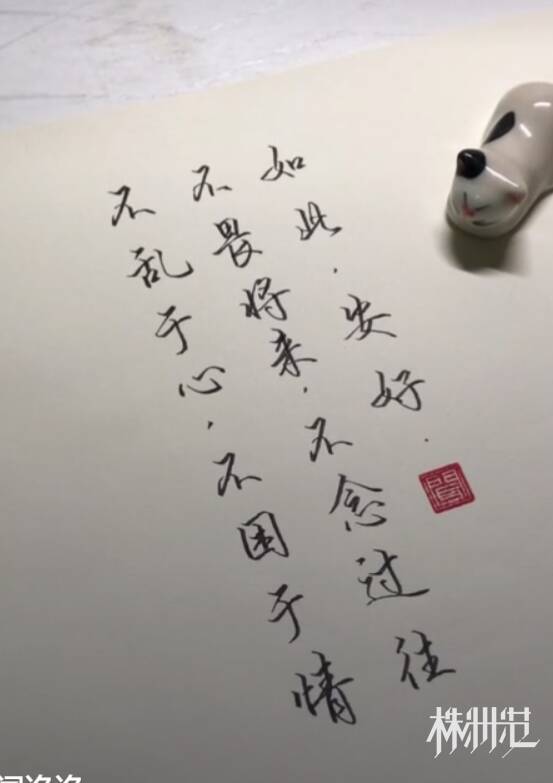 不乱于心，不困于情
不畏将来，不念过往
如此，安好。
株洲范